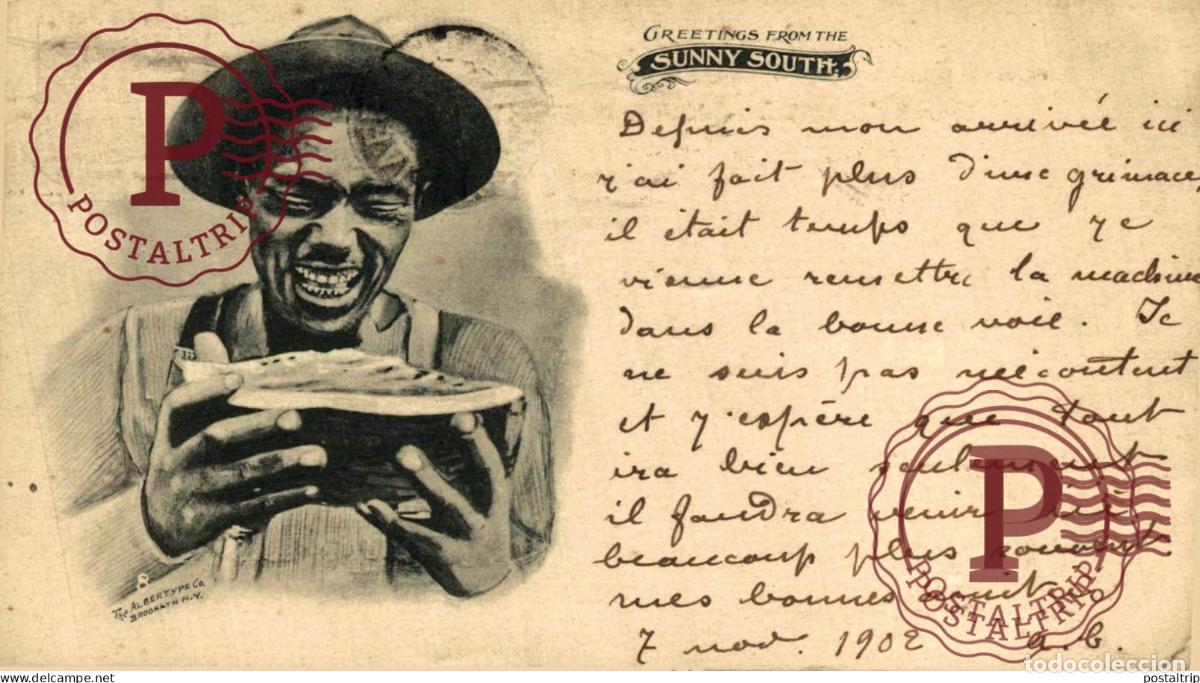 GREETINGS FROM THE
SUNNY SOUTH.
Depuis mon arrivée ici
j'ai fait plus d'une grimace,
il était temps que je
vienne remettre la machine
dans la bonne voie. Je
ne suis pas mécontent
et j'espère que tout
ira bien seulement
il faudra venir ici
beaucoup plus souvent.
mes bonnes
7 nov. 1902 a. b.
8
The ALBERTYPE Co.
BROOKLYN N.Y.
P
POSTALTRIP
P
POSTALTRIP
POSTALTRIP
todocoleccion
www.delcampe.net
postaltrip